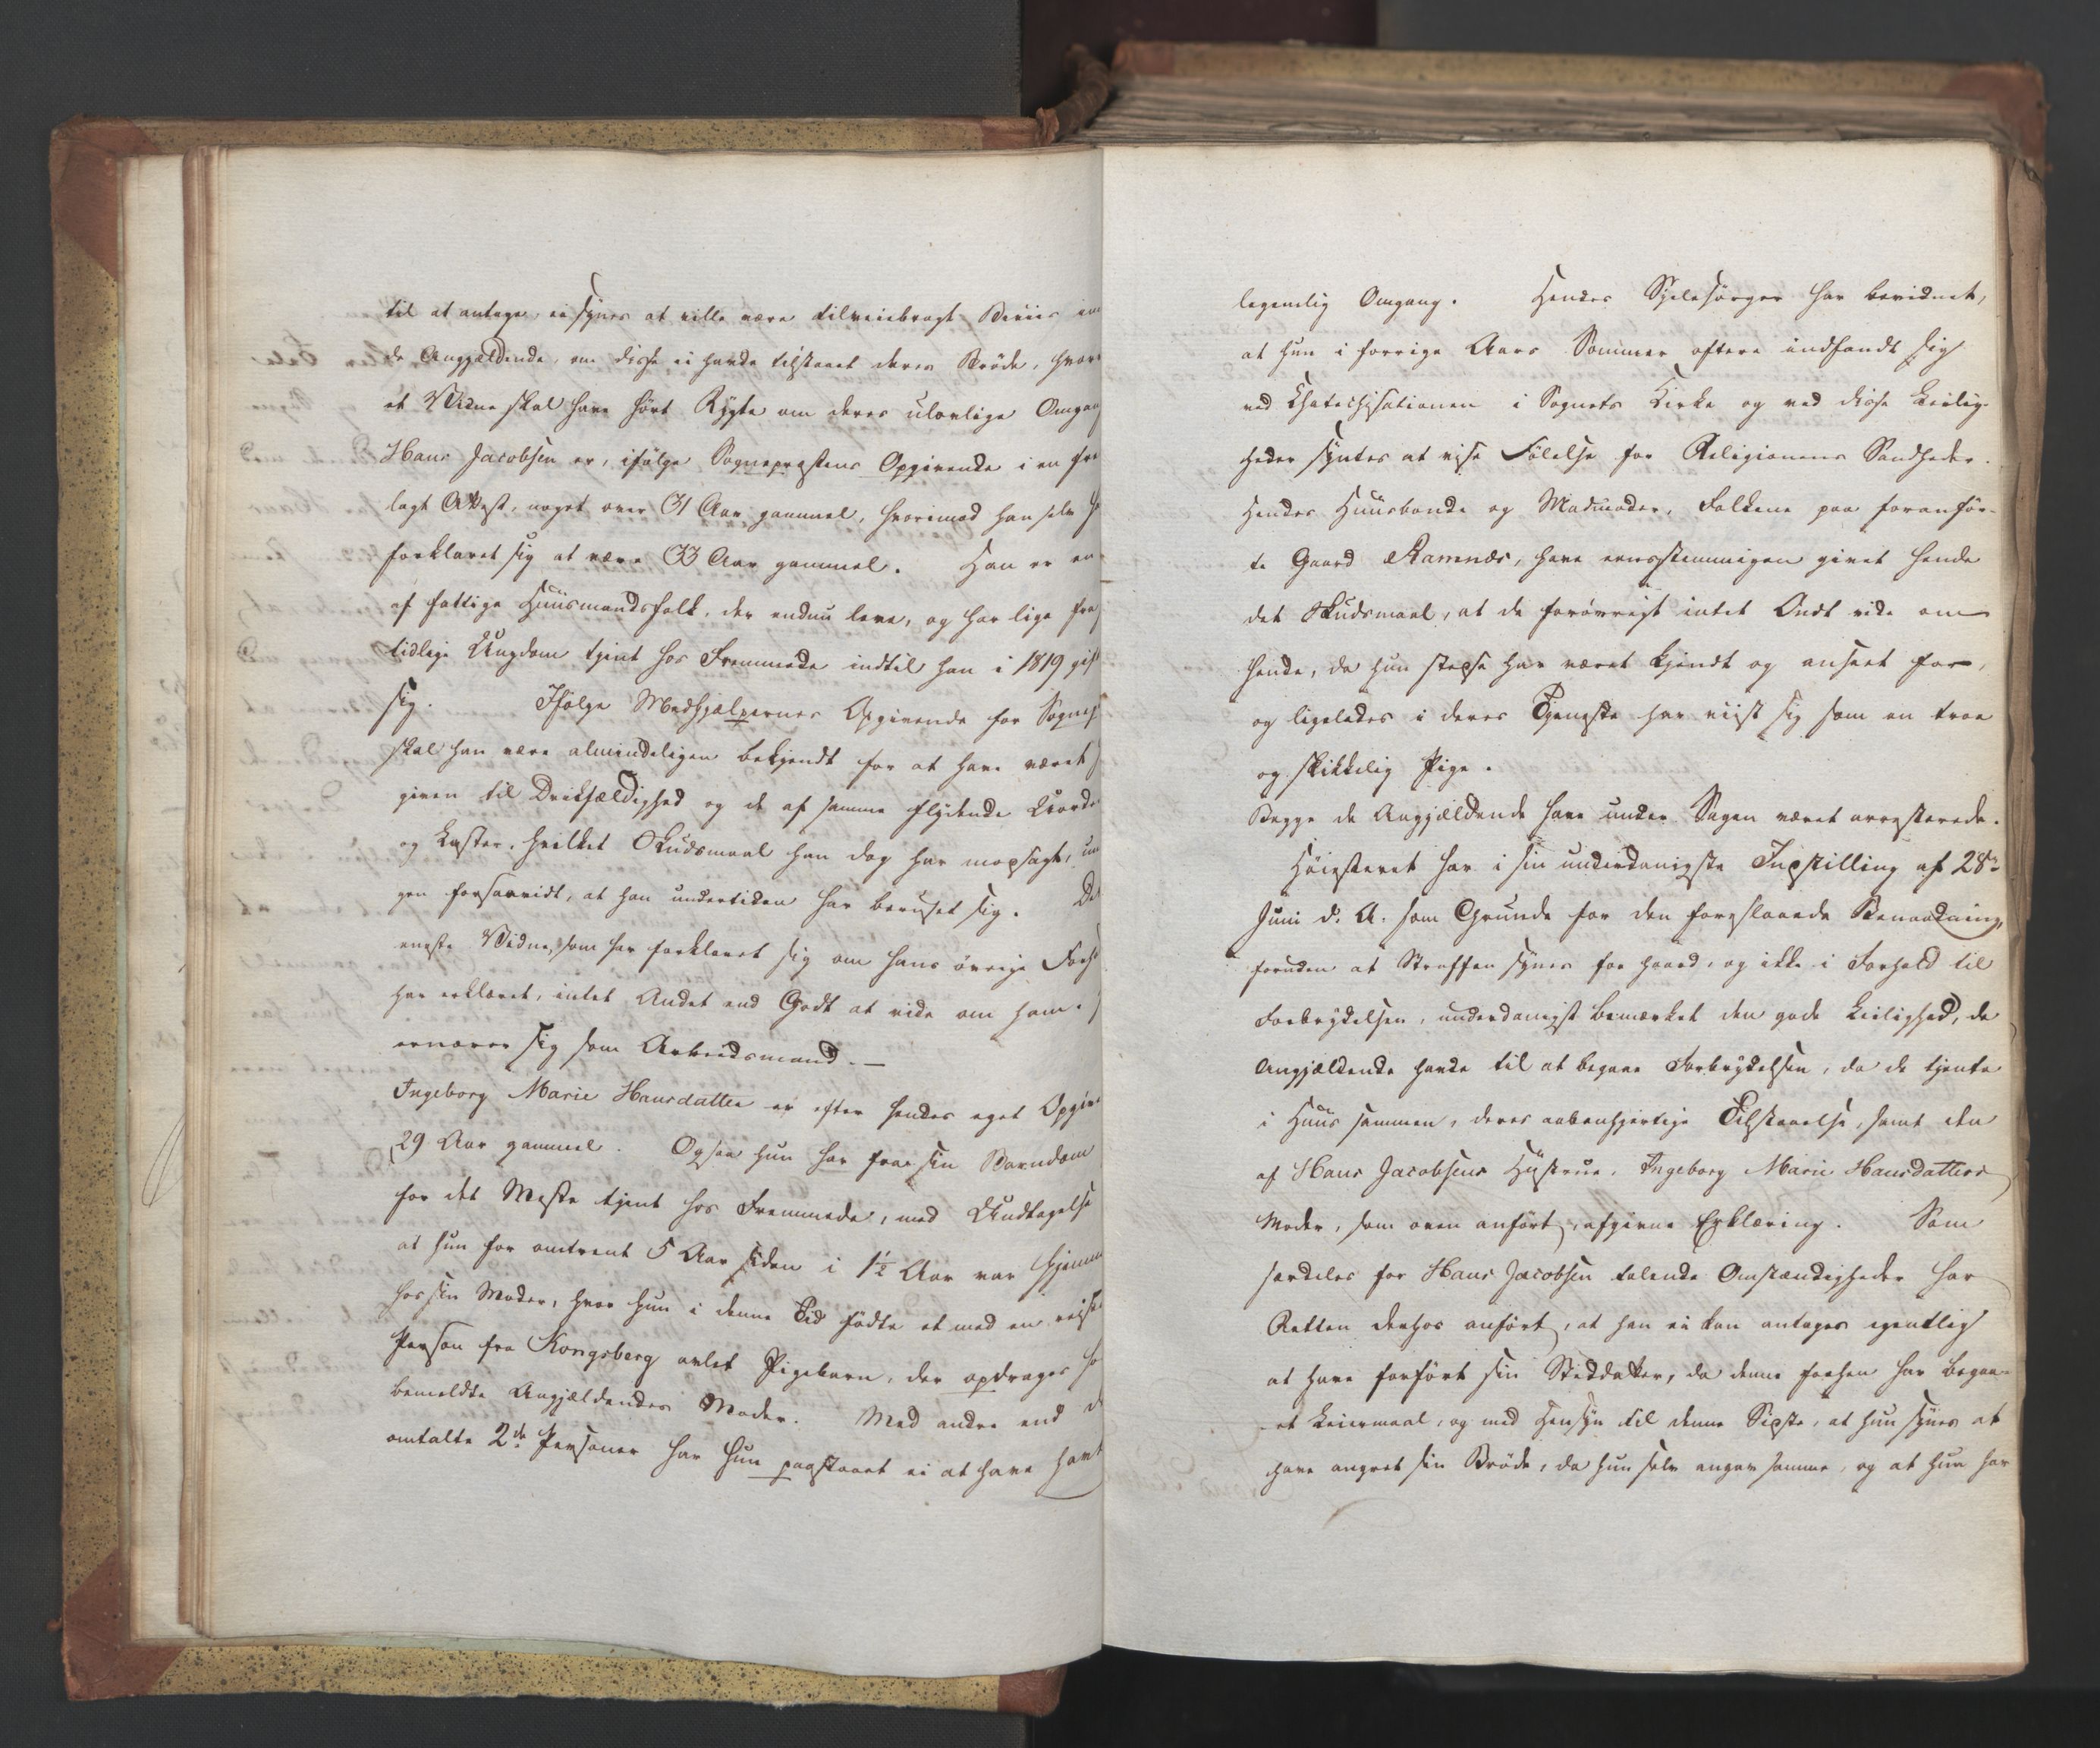 til at antage, ei synes at ville være tilveiebragt Beviis
de Angjældende, om disse ei havde tilstaaet deres Brøde, hvor
et Vidne skal have hørt Rygte om deres ulovlige Omgang
Hans Jacobsen er, ifølge Sognepræstens Opgivende i en frem
lagt Attest, noget over 31 Aar gammel, hvorimod han selv
forklaret sig at være 33 Aar gammel. Han er en
af fattige Huusmandsfolk, der endnu leve, og har lige fra
tidlige Ungdom tjent hos Fremmede indtil han i 1819 gift
sig. Ifølge Medhjælpernes Opgivende for Sognepr
skal han være almindeligen bekjendt for at have været
given til Drikfældighed og de af samme flydende Uorde
og Laster, hvilket Skudsmaal han dog har modsagt,
gen forsaavidt, at han undertiden har beruset sig. Det
eneste Vidne, som har forklaret sig om hans øvrige Forh
har erklæret, intet Andet end Godt at vide om ham.
ernærer sig som Arbeidsmand. —
Ingeborg Marie Hansdatter er efter hendes eget Opgive
29 Aar gammel. Ogsaa hun har fra sin Barndom
for det Meste tjent hos Fremmede, med Undtagelse
at hun for omtrent 5 Aar siden i 1½ Aar var hjemme
hos sin Moder, hvor hun i denne Tid fødte et med en reist
Person fra Kongsberg avlet Pigebarn, der opdrages ho
bemeldte Angjældendes Moder. Med andre end d
omtalte 2de Personer har hun paastaaet ei at have havt
legemlig Omgang. Hendes Sjelesørger har bevidnet,
at hun i forrige Aars Sommer oftere indfandt sig
ved Chatechisationen i Sognets Kirke og ved disse Leilig-
heder syntes at vise Følelse for Religionens Sandheder.
Hendes Huusbonde og Madmoder, Folkene paa foranfør-
te Gaard Ramnæs, have eensstemmigen givet hende
det Skudsmaal, at de forøvrigt intet Ondt vide om
hende, da hun stedse har været kjendt og anseet for,
og ligeledes i deres Tjeneste har viist sig som en troe
og skikkelig Pige.
Begge de Angjældende have under Sagen været arresterede.
Høiesteret har i sin underdanigste Indstilling af 28de
Juni d. A. som Grunde for den foreslaaede Benaadning,
foruden at Straffen synes for haard, og ikke i Forhold til
Forbrydelsen, underdanigst bemærket den gode Leilighed, de
Angjældende havde til at begaae Forbrydelsen, da de tjente
i Huus sammen, deres aabenhjertige Tilstaaelse, samt den
af Hans Jacobsens Hustrue, Ingeborg Marie Hansdatters
Moder, som oven anført, afgivne Erklæring. Som
særdeles for Hans Jacobsen talende Omstændigheder har
Retten derhos anført, at han ei kan antages egentlig
at have forført sin Steddatter, da denne forhen har begaa-
et Leiermaal, og med Hensyn til denne Sidste, at hun synes at
have angret sin Brøde, da hun selv angav samme, og at hun har